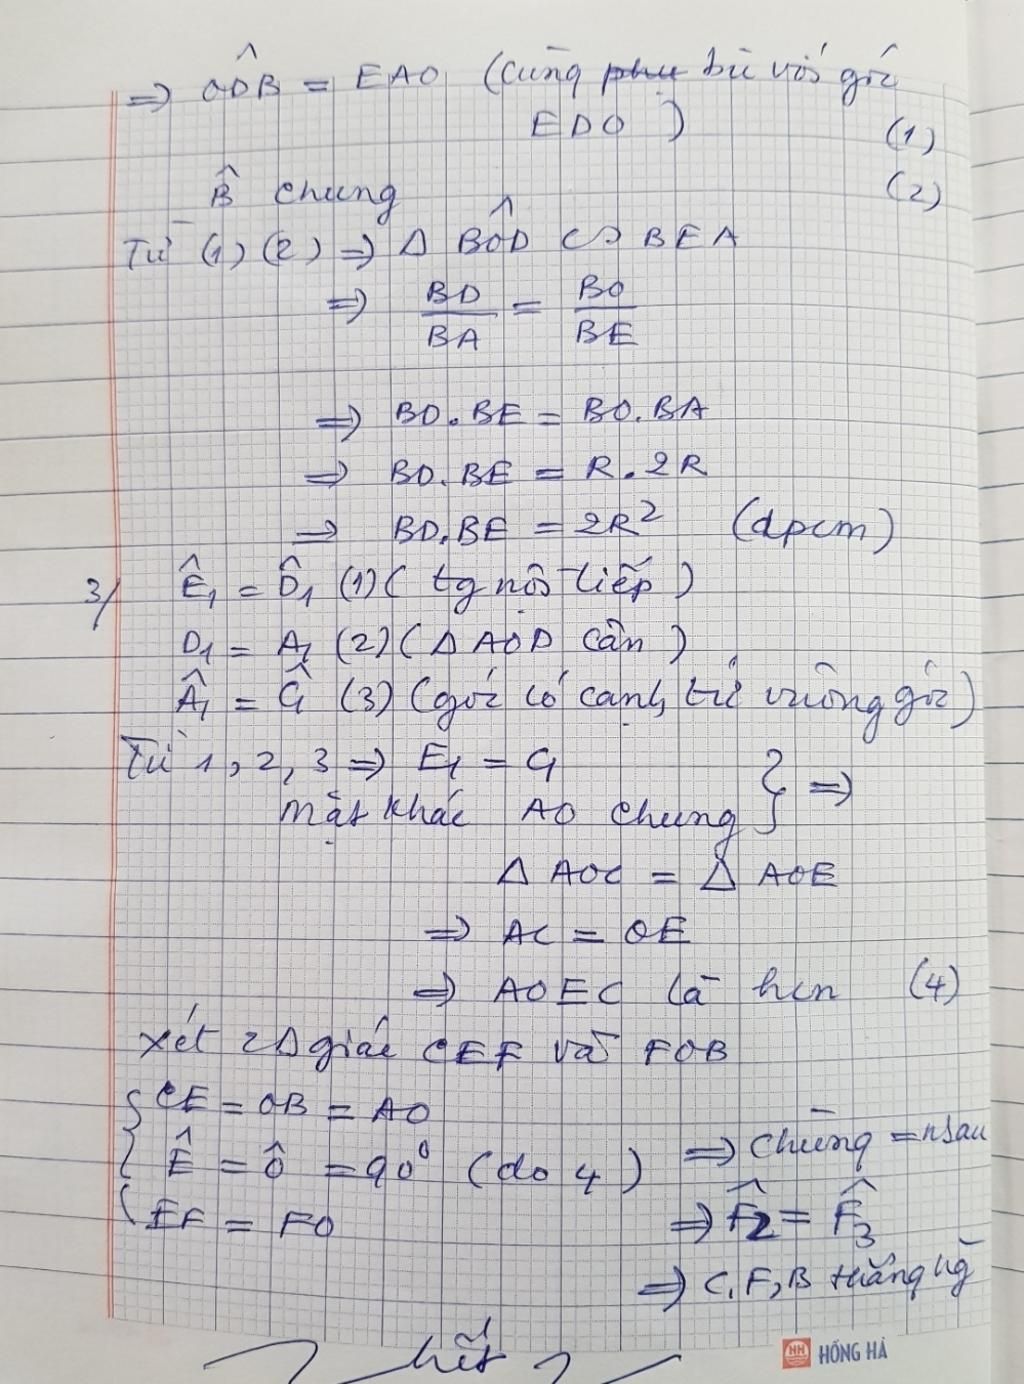 => ODB̂ = EAO (cùng phụ bù với góc
EDO) (1)
B̂ chung (2)
Từ (1) (2) => Δ BÔD ∽ BEA
=> BD/BA = BO/BE
=> BD.BE = BO.BA
=> BD.BE = R.2R
=> BD.BE = 2R² (đpcm)
3/ Ê₁ = D̂₁ (1) ( tg nội tiếp )
D₁ = A₁ (2) ( Δ AOD cân )
Â₁ = Ĉ₁ (3) (góc có cạnh t/ứ vuông góc)
Từ 1, 2, 3 => E₁ = C₁
Mặt khác AO chung } =>
Δ AOC = Δ AOE
=> AC = OE
=> AOEC là hcn (4)
xét 2 Δ giác CEF và FOB
{ CE = OB = AO
Ê = Ô = 90° (do 4) => chúng = nhau
EF = FO => F̂₂ = F̂₃
=> C, F, B thẳng hg
hết
HH HỒNG HÀ